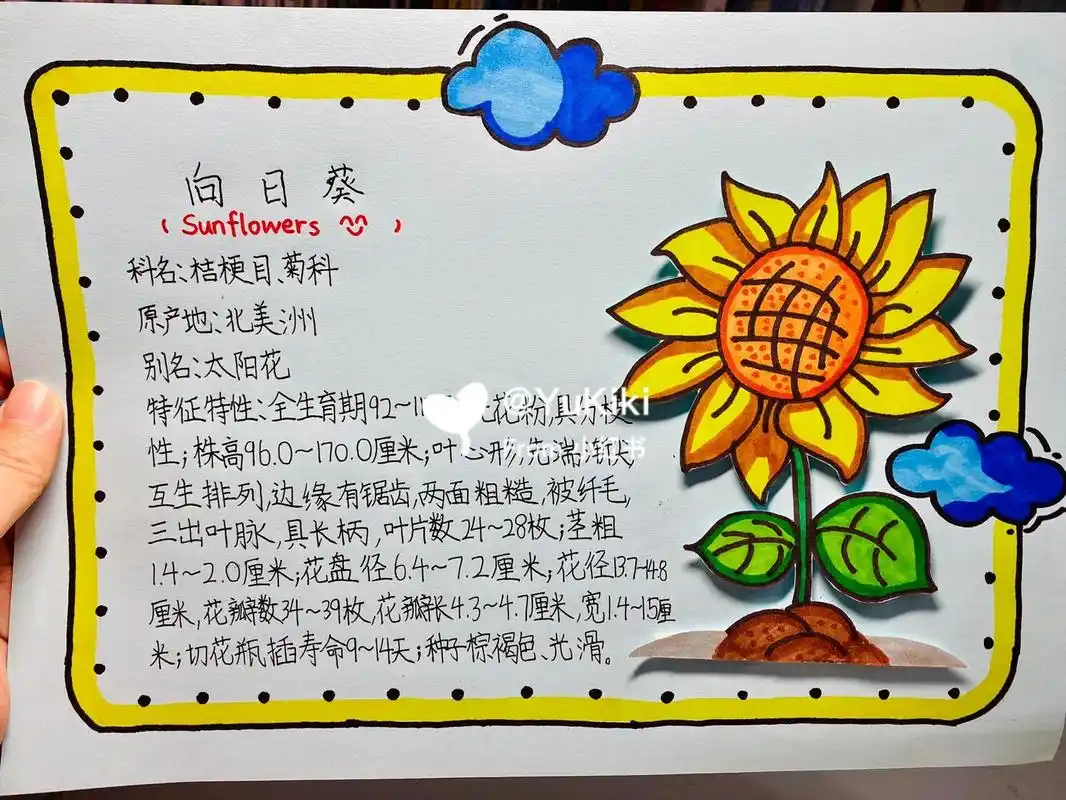 向日葵
(Sunflowers )
科名:桔梗目、菊科
原产地:北美洲
别名:太阳花
特征特性:全生育期92~11 花粉,具分枝
性;株高96.0~170.0厘米;叶心形,先端渐尖
互生排列,边缘有锯齿,两面粗糙,被纤毛,
三出叶脉,具长柄,叶片数24~28枚;茎粗
1.4~2.0厘米;花盘径6.4~7.2厘米;花径13.7-14.8
厘米,花瓣数34~39枚,花瓣长4.3~4.7厘米,宽1.4~15厘
米;切花瓶插寿命9~14天;种子棕褐色、光滑。
@YuKiki